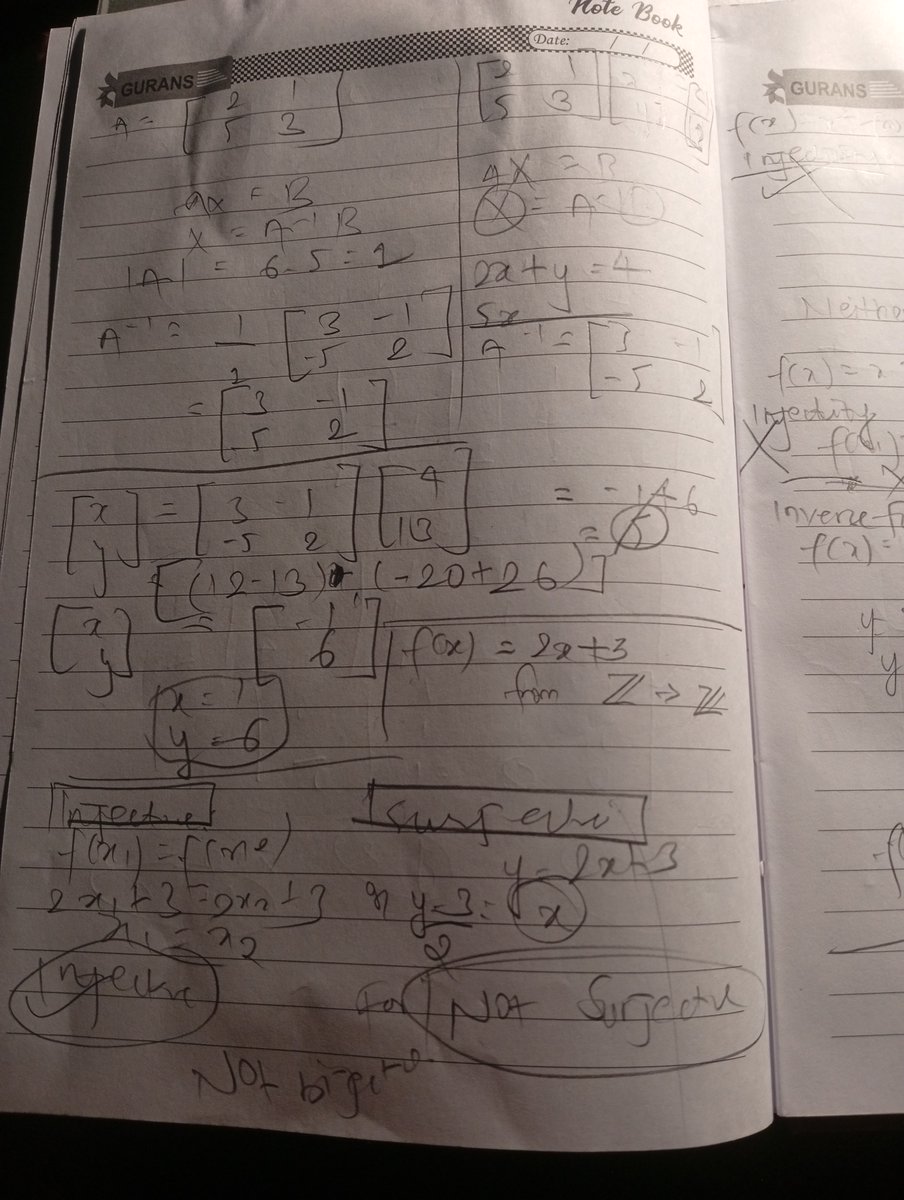 Note Book
Date: / /
GURANS
A = [2 1
5 3]
AX = B
X = A⁻¹ B
|A| = 6-5 = 1
A⁻¹ = 1/1 [3 -1
-5 2]
= [3 -1
-5 2]
[2 1
5 3]
AX = B
X = A⁻¹
2x+y = 4
5x
A⁻¹ = [3 -1
-5 2]
[x
y] = [3 -1
-5 2] [4
13]
= -1+6
= 5
[(12-13) (-20+26)]
[x
y] = [-1
6]
x = -1
y = 6
f(x) = 2x+3
from ℤ → ℤ
Injective
f(x₁) = f(x₂)
2x₁+3 = 2x₂+3
x₁ = x₂
Injective
Surjective
y = 2x+3
or y-3/2 = x
For Not Surjective
Not bijective
GURANS
f(x) =
Injective
Neither
f(x) = x
Injectivity
f(x₁)
Inverse
f(x) =
y
y